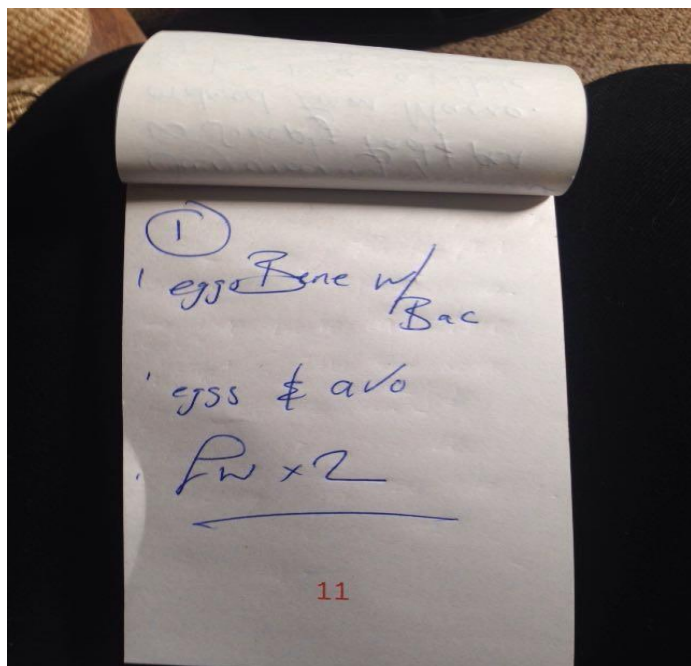 1
1 eggs Bene w/
Bac
1 egss & avo
Fw x 2
11